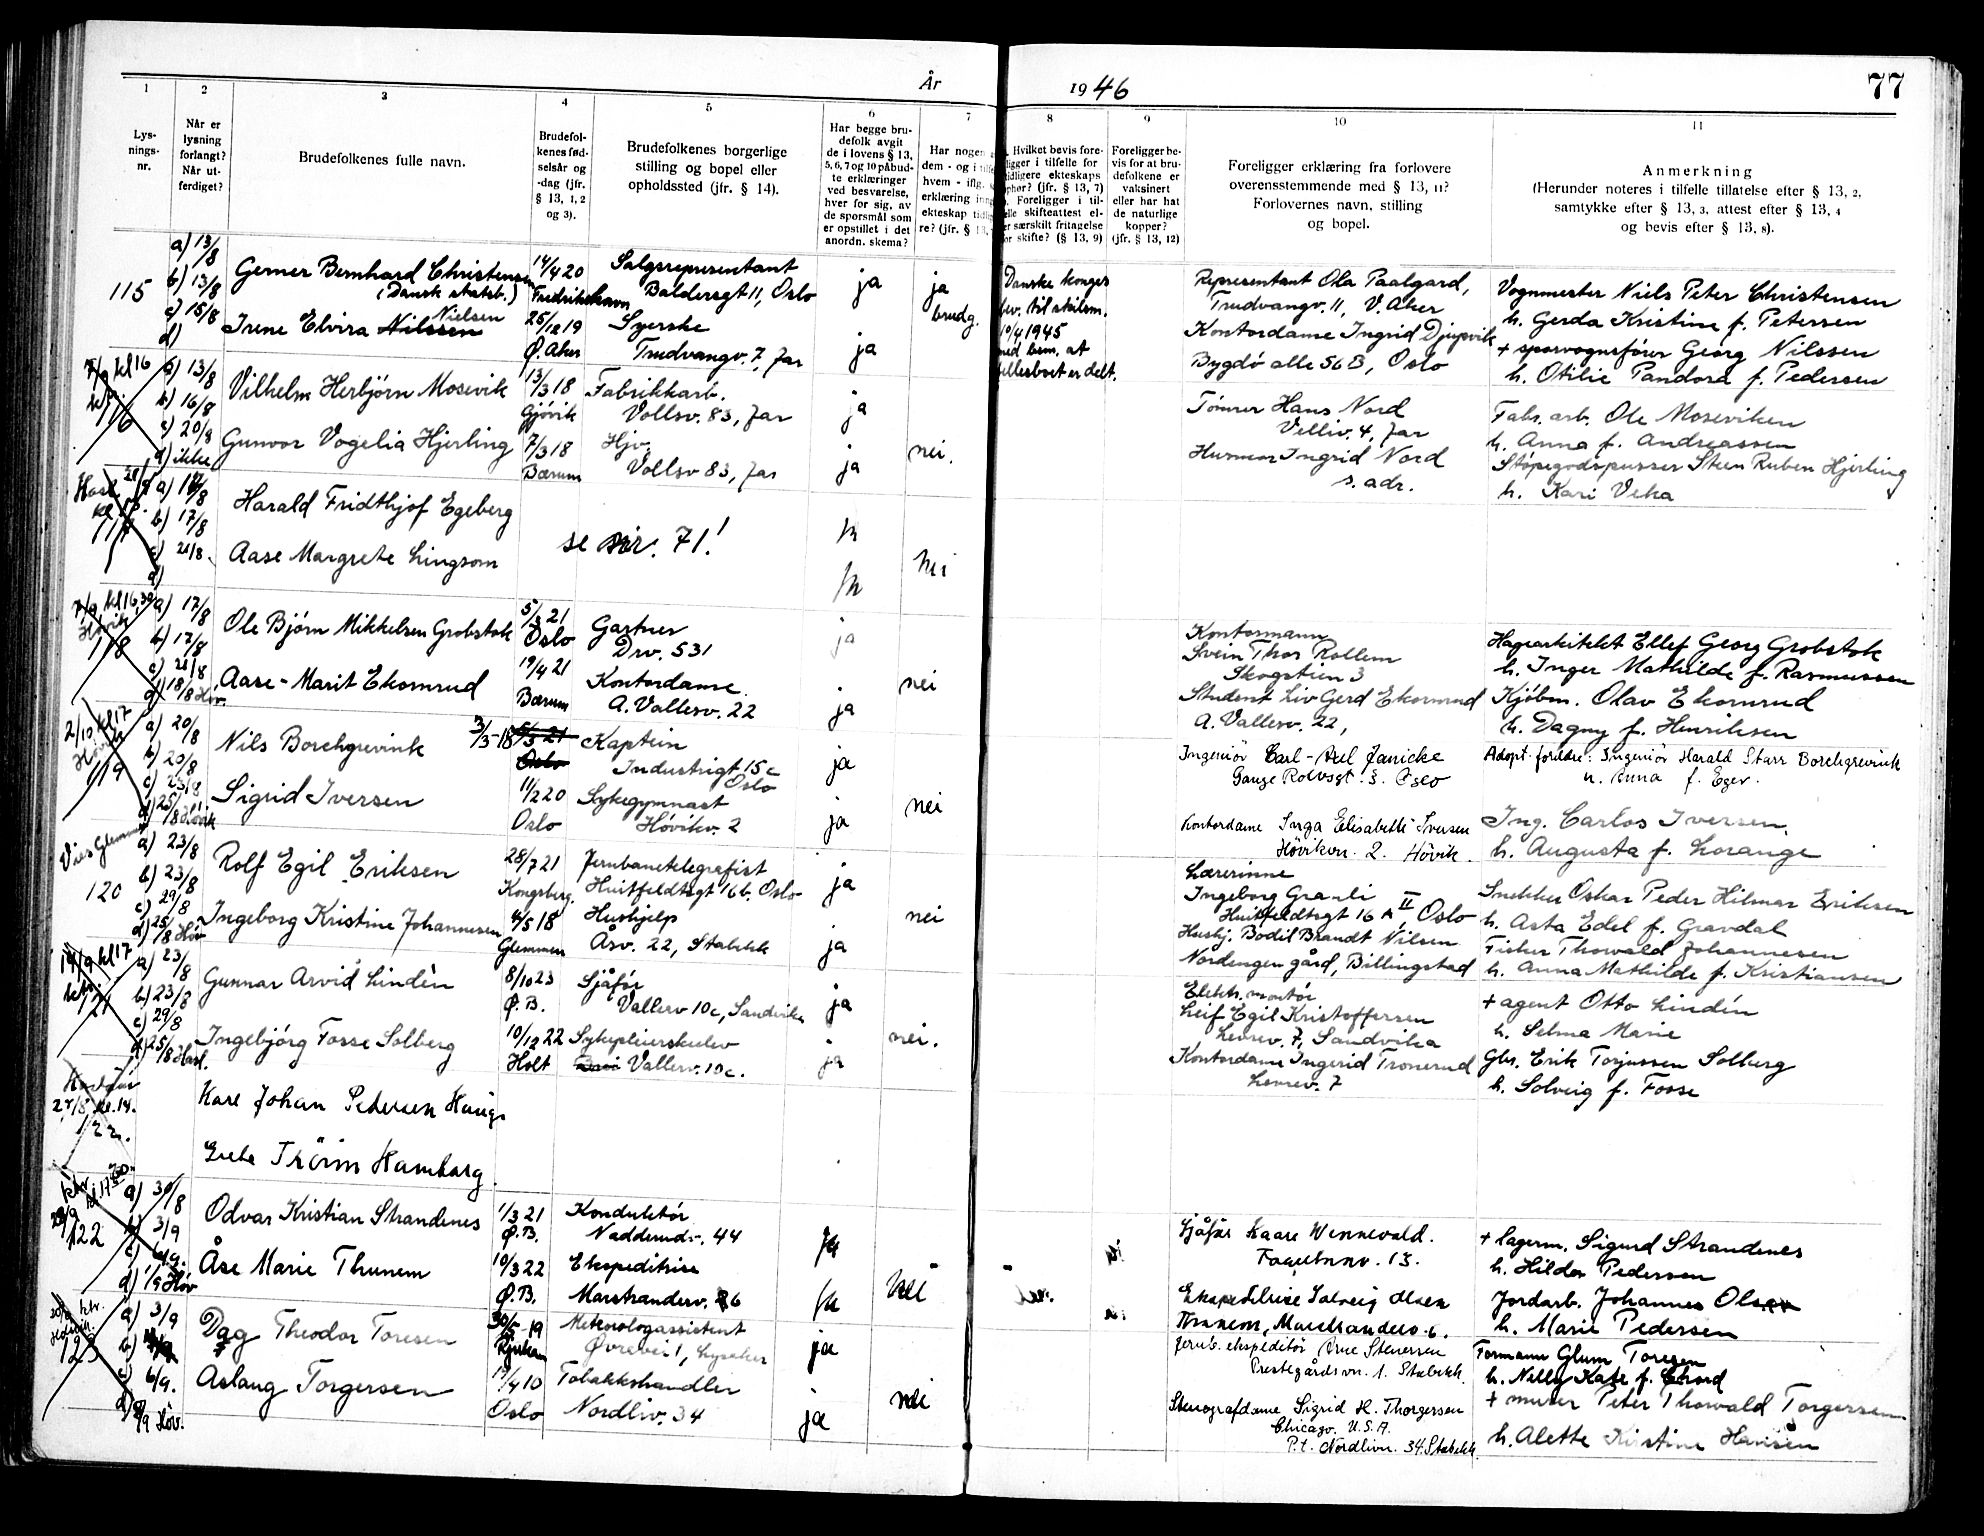 År 1946
77
1 2 3 4 5 6 7 8 9 10 11
Lys-
nings-
nr.
Når er
lysning
forlangt?
Når ut-
ferdiget?
Brudefolkenes fulle navn.
Brudefol-
kenes fød-
selsår og
-dag (jfr.
§ 13, 1, 2
og 3).
Brudefolkenes borgerlige
stilling og bopel eller
opholdssted (jfr. § 14).
Har begge bru-
defolk avgit
de i lovens § 13,
5, 6, 7 og 10 påbud-
te erklæringer
ved besvarelse,
hver for sig, av
de spørsmål som
er opstillet i det
anordn. skema?
Har nogen
dem - og i
hvem - iflg.
erklæring
ekteskap
re? (jfr. § 13,
Hvilket bevis fore-
ligger i tilfelle for
tidligere ekteskaps
ophør? (jfr. § 13, 7)
Foreligger i til-
felle skifteattest el-
er særskilt fritagelse
for skifte? (§ 13, 9)
Foreligger be-
vis for at bru-
defolkene er
vaksinert
eller har hat
de naturlige
kopper?
(jfr. § 13, 12)
Foreligger erklæring fra forlovere
overensstemmende med § 13, 11?
Forlovernes navn, stilling
og bopel.
Anmerkning
(Herunder noteres i tilfelle tillatelse efter § 13, 2,
samtykke efter § 13, 3, attest efter § 13, 4
og bevis efter § 13, 8).
115
a) 13/8
b) 13/8
c) 15/8
d)
Gerner Bernhard Christensen
(Dansk statsb.)
Nielsen
Irene Elvira Nilssen
14/4 20
Fredrikshavn
25/12 19
Ø. Aker
Salgsrepresentant
Baldersgt 11, Oslo
Syerske
Trudvangv. 7, Jar
ja
ja
ja
brudg.
Danske konges
bev. til skilsm.
10/4 1945
med bem. at
fellesboet er delt.
Representant Ola Paalgard,
Trudvangv. 11, V. Aker
Kontordame Ingrid Djupvik
Bygdø alle 56 B, Oslo
Vognmester Niels Peter Christensen
h. Gerda Kristine f. Petersen
+ sporvognsfører Georg Nilssen
h. Otilie Pandora f. Pedersen
7/9 kl 16
116
a) 13/8
b) 16/8
c) 20/8
d) ikke
Vilhelm Herbjørn Mosevik
Gunvor Vogelia Hjerling
13/3 18
Gjøvik
7/3 18
Bærum
Fabrikkarb.
Vollsv. 83, Jar
Hjv.
Vollsv 83, Jar
ja
ja
nei.
Tømrer Hans Nord
Velliv. 4, Jar
Husmor Ingrid Nord
s. adr.
Fabr. arb. Ole Moseviken
h. Anna f. Andreassen
Støpegodspusser Steen Ruben Hjerling
h. Kari Veka
117
b) 17/8
Harald Fridthjof Egeberg
Aase Margrete Lingsom
se nr. 71!
ja
ja
nei
7/9 kl 16,30
Høvik
118
a) 17/8
b) 17/8
c) 21/8
d) 18/8 Høv.
Ole Bjørn Mikkelsen Grobstok
Aase-Marit Ekornrud
5/3 21
Oslo
19/4 21
Bærum
Gartner
Drv. 531
Kontordame
A. Vallesv. 22
ja
ja
nei
Kontormann
Svein Thor Rollem
Skogstien 3
Student Liv Gerd Ekornrud
A. Vallesv. 22,
Hagearkitekt Ellef Georg Grobstok
h. Inger Mathilde f. Rasmussen
Kjøbm. Olav Ekornrud
h. Dagny f. Henriksen
2/10 kl 17
Høvik
119
a) 20/8
b) 20/8
c) 23/8
d) 25/8 Høvik
Nils Borchgrevink
Sigrid Iversen
3/3-18 5/3 21
Oslo
11/2 20
Oslo
Kaptein
Industrigt 15c
Oslo
Sykegymnast
Høvikv. 2
ja
ja
nei
Ingeniør Carl-Axel Janicke
Gange Rolvsgt. 3. Oslo
Kontordame Inga Elisabeth Iversen
Høvikvn. 2. Høvik.
Adopt. foreldre: Ingeniør Harald Starr Borchgrevink
h. Anna f. Eger.
Ing. Carlos Iversen.
h. Augusta f. Lorange
Vies Glemmen
120
a) 23/8
b) 23/8
c) 29/8
d) 25/8 Høv
Rolf Egil Eriksen
Ingeborg Kristine Johannesen
28/7 21
Kongsberg.
4/5 18
Glemmen
Jernbanetelegrafist
Huitfeldtsgt 16 b, Oslo
Hushjelp
Åsv. 22, Stabekk
ja
ja
nei
Lærerinne
Ingeborg Granli
Huitfeldtsgt 16 A II, Oslo
Hushj. Bodil Brandt Nilsen
Nordengen gård, Billingstad
Snekker Oskar Peder Hilmar Eriksen
h. Asta Edel f. Gravdal
Fisker Thorvald Johannesen
h. Anna Mathilde f. Kristiansen
14/9 kl 17
121
a) 23/8
b) 23/8
c) 29/8
d) 25/8 Hasl.
Gunnar Arvid Lindèn
Ingebjørg Fosse Solberg
8/10 23
Ø. B.
10/12 22
Holt
Sjåfør
Vallerv 10c, Sandvika
Sykepleierskelev
Vallerv. 10c.
ja
ja
nei.
Elektr. montør
Leif Egil Kristoffersen
Levrev. 7, Sandvika
Kontordame Ingerid Tronerud
Levrev. 7
+ agent Otto Lindén
h. Selma Marie
Gbr. Erik Torjussen Solberg
h. Solveig f. Fosse
kl. 14.
122.
Kare Johan Pedersen Haugs
Grete Trörim Hamborg.
122
a) 30/8
b) 3/9
c) 6/9.
d) 1/9 Høv
Odvar Kristian Strandenes
Åse Marie Thunem
1/3 21
Ø.B.
10/3 22
Ø.B.
Konduktør
Nadderudv. 44
Ekspeditrise
Marstranderv. 6
ja
ja
nei
Sjåfør Kaare Wennevald.
13.
Ekspeditrise Solveig Olsen
Thunem, Marstranderv. 6.
+ lagerm. Sigurd Strandenes
h. Hilda Pedersen
Jordarb. Johannes Olsen
h. Marie Pedersen
123
a) 3/9
c) 6/9.
Høv.
Dag Theodor Toresen
Aslaug Torgersen
19
Rjukan
17/4 10
Oslo
Meteorologassistent
Øvrevei 1, Lysaker
Tobakkshandler
Nordliv. 34
ja
ja
nei
Jernb. ekspeditør Arne Stenersen
Prestegårdsvn. 1. Stabekk.
Stenografdame Sigrid H. Thorgersen
Chicago. U.S.A.
P.t. Nordlivn. 34. Stabekk.
Formann Glum Toresen
h. Nelly Kate f.
+ murer Peter Thorvald Torgersen
h. Alette Kristine Hansen